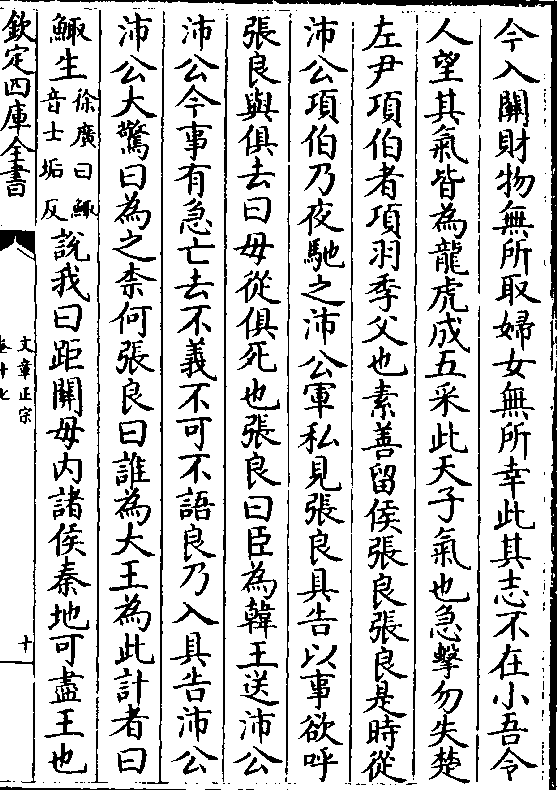 今入關財物無所取婦女無所幸此其志不在小吾令
人望其氣皆為龍虎成五采此天子氣也急擊勿失楚
左尹項伯者項羽季父也素善留侯張良張良是時從
沛公項伯乃夜馳之沛公軍私見張良具告以事欲呼
張良與俱去曰毋從俱死也張良曰臣為韓王送沛公
沛公今事有急亡去不義不可不語良乃入具告沛公
沛公大驚曰為之柰何張良曰誰為大王為此計者曰
鯫生徐廣曰鯫音士垢反說我曰距關毋内諸侯秦地可盡王也
欽定四庫全書
文章正宗
卷十七
十